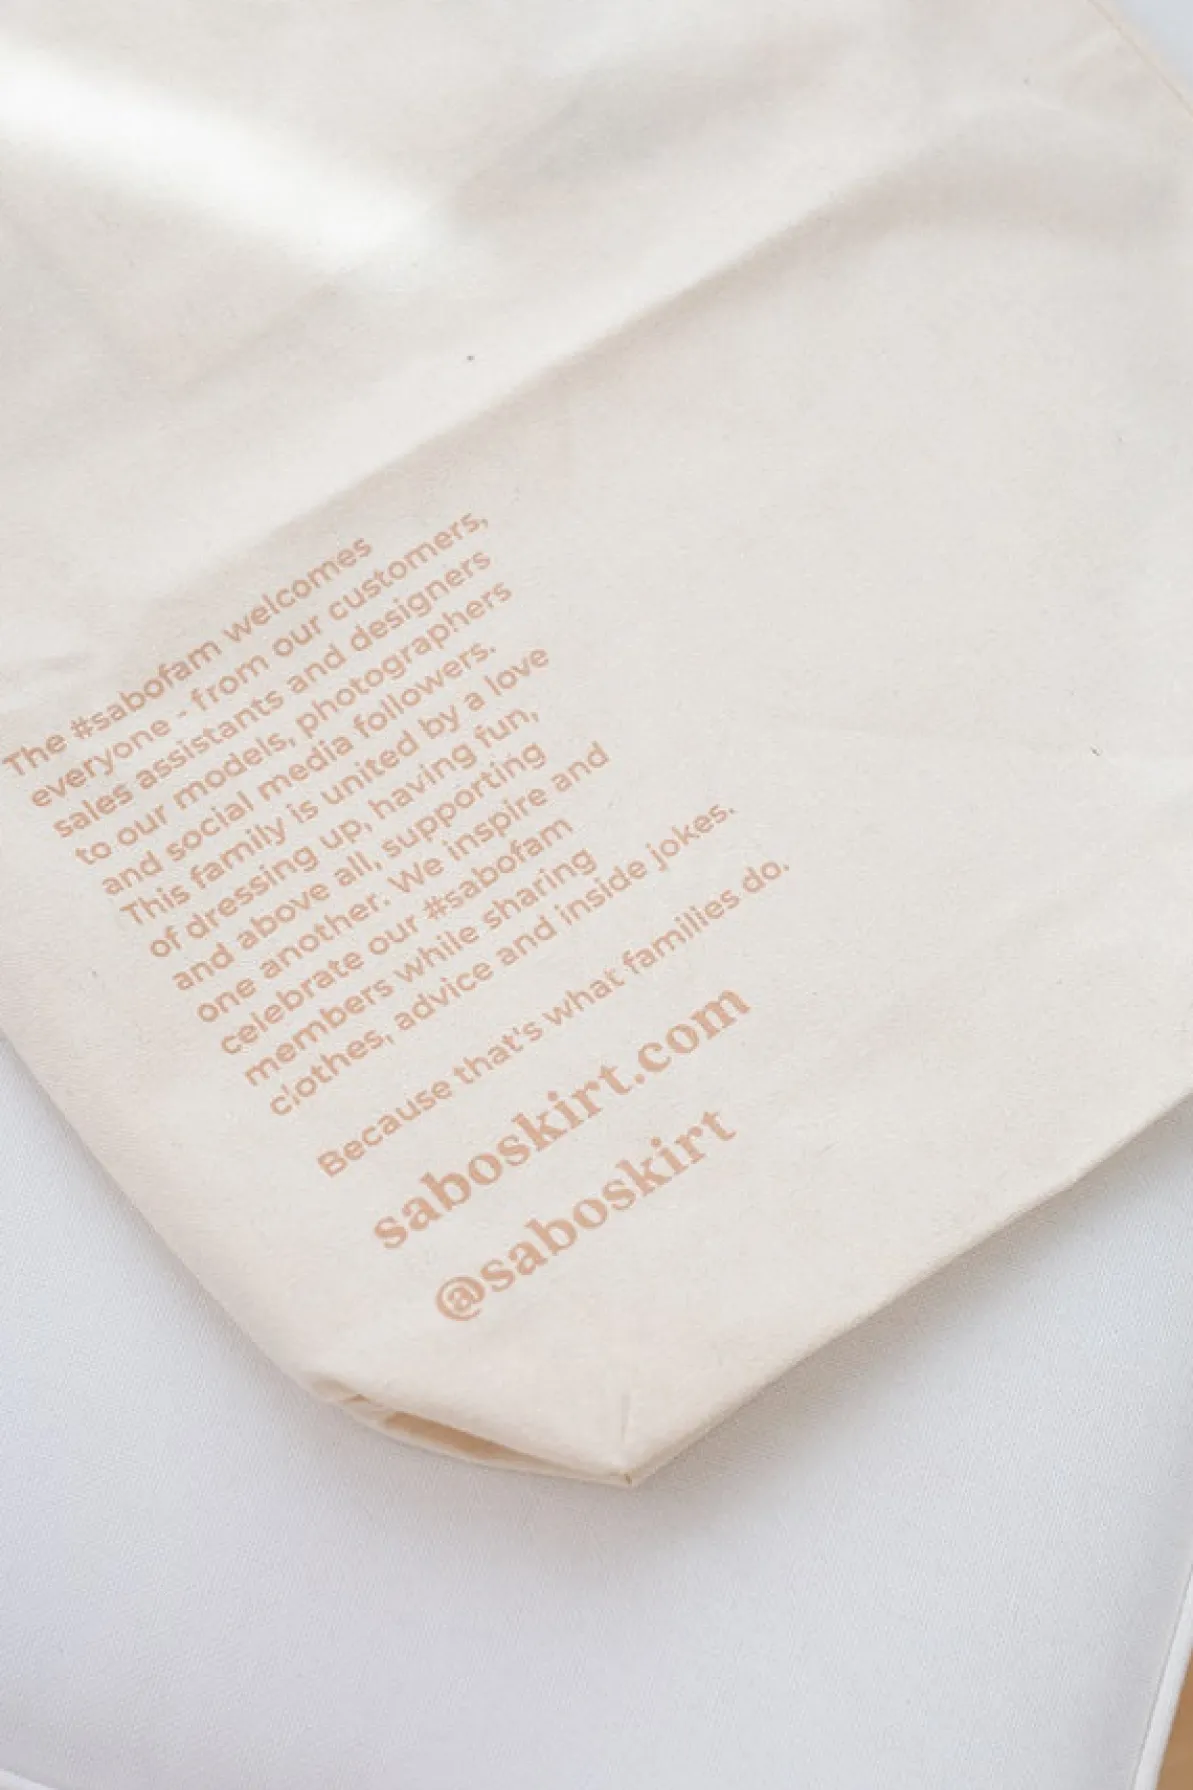 The #sabofam welcomes
everyone - from our customers,
sales assistants and designers
to our models, photographers
and social media followers.
This family is united by a love
of dressing up, having fun,
and above all, supporting
one another. We inspire and
celebrate our #sabofam
members while sharing
clothes, advice and inside jokes.
Because that's what families do.
saboskirt.com
@saboskirt